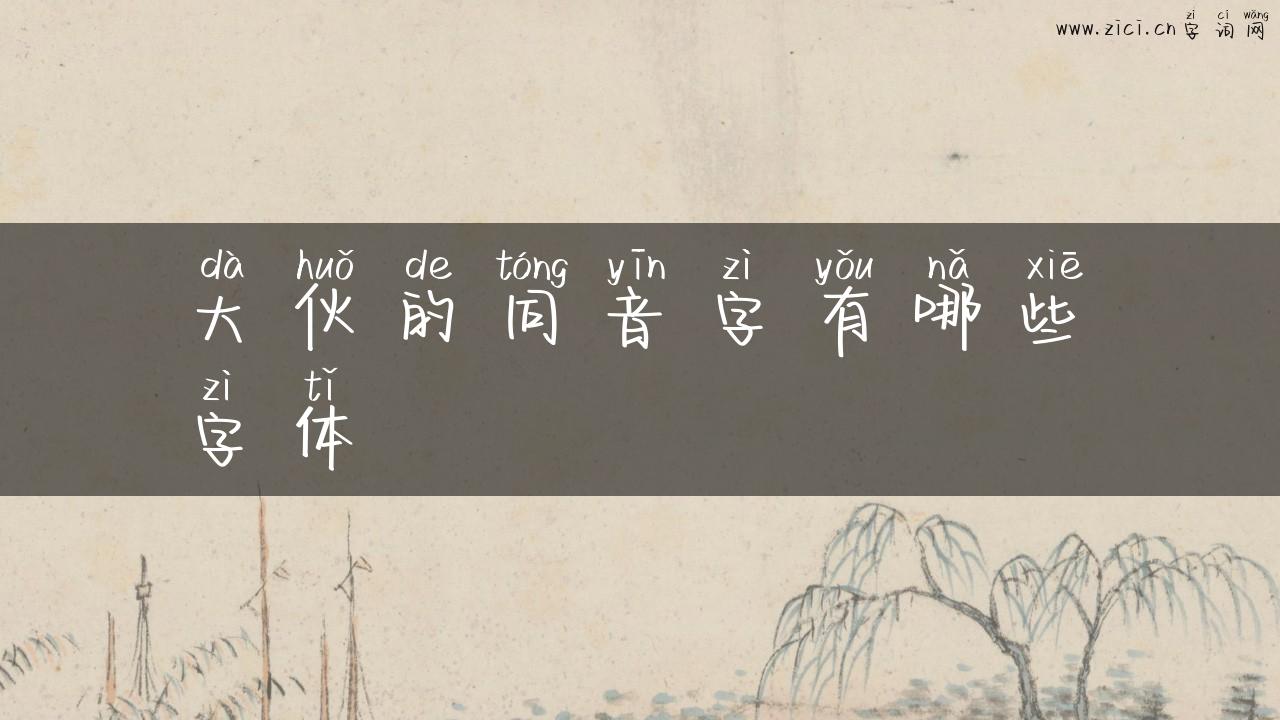 zì cí wǎng
www.zici.cn 字词网
dà huǒ de tóng yīn zì yǒu nǎ xiē
大伙的同音字有哪些
zì tǐ
字体